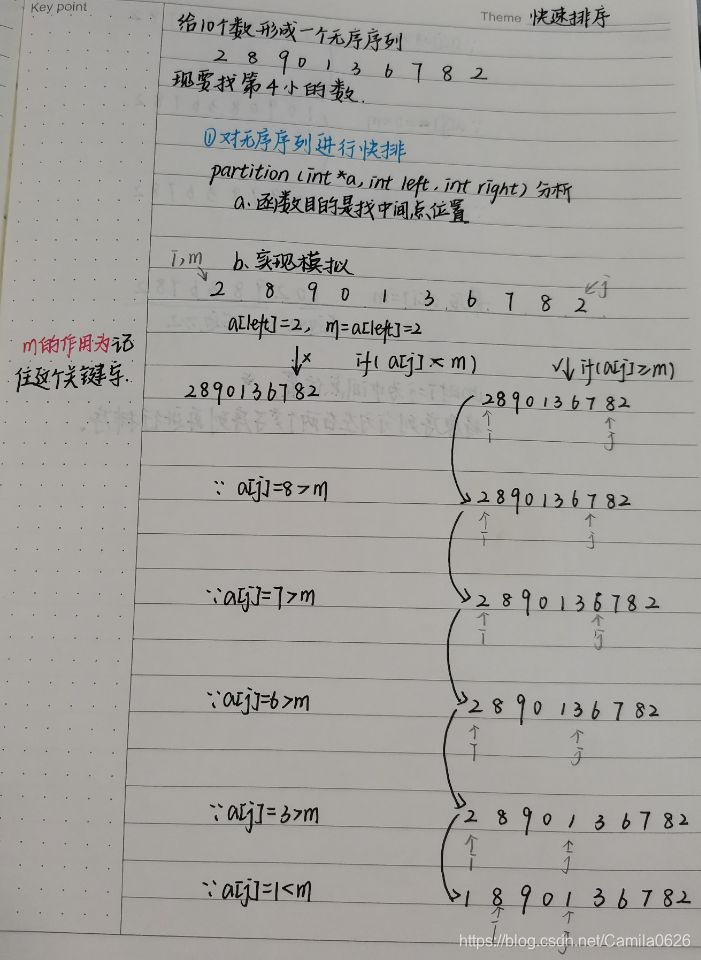 Key point
Theme 快速排序
给10个数形成一个无序序列
2 8 9 0 1 3 6 7 8 2
现要找第4小的数.
① 对无序序列进行快排
partition (int *a, int left, int right) 分析
a. 函数目的是找中间点位置
i,m b. 实现模拟
2 8 9 0 1 3 6 7 8 2 j
a[left]=2, m=a[left]=2
m的作用为记
住这个关键字.
× if (a[j] < m) √ if (a[j] ≥ m)
2890136782
2890136782
i j
∵ a[j]=8>m
2890136782
i j
∵ a[j]=7>m
2890136782
i j
∵ a[j]=6>m
2890136782
i j
∵ a[j]=3>m
2890136782
i j
∵ a[j]=1<m
1890136782
i j
https://blog.csdn.net/Camila0626